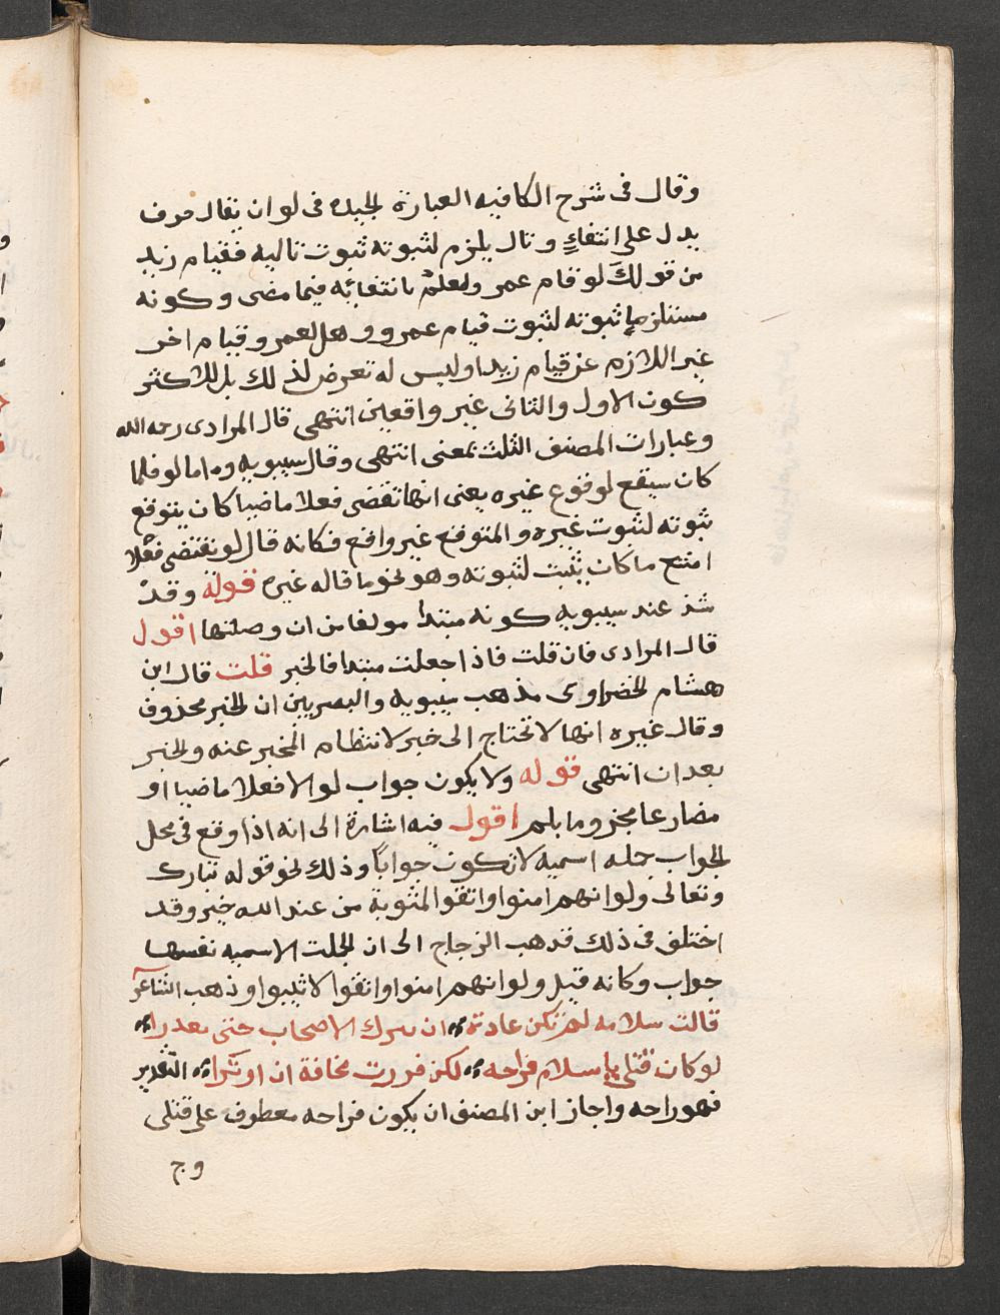 وقال فى شرح الكافيه العبارة الجيده فى لو ان يقال حرف
يدل على انتفاء تال يلزم لثبوته ثبوت تاليه فقيام زيد
من قولك لو قام عمرو بانتفائه فيما مضى وكونه
مستلزما ثبوته لثبوت قيام عمرو وهل لعمرو قيام اخر
غير اللازم عن قيام زيد او ليس له تعرض لذلك بل الاكثر
كون الاول والثانى غير واقعين انتهى قال المرادى رحه الله
وعبارات المصنف الثلث بمعنى انتهى وقال سيبويه واما لو فلما
كان سيقع لوقوع غيره يعنى انها تقضى فعلا ماضيا كان يتوقع
ثبوته لثبوت غيره والمتوقع غير واقع فكانه قال لو تقتضى فعلا
امتنع ما كان يثبت لثبوته وهو نحو ما قاله غيره قوله وقد
شذ عند سيبويه كونه مبتدا مولفا من ان وصلتها اقول
قال المرادى فان قلت فاذا جعلت مبتدا فالخبر قلت قال ابن
هشام الخضراوى مذهب سيبويه والبصريين ان الخبر محذوف
وقال غيره انها لا تحتاج الى خبر لانتظام المخبر عنه والخبر
بعد ان انتهى قوله ولا يكون جواب لو الا فعلا ماضيا او
مضارعا مجزوما بلم اقول فيه اشارة الى انه اذا وقع فى محل
الجواب جمله اسميه لا تكون جوابا وذلك نحو قوله تبارك
وتعالى ولو انهم امنوا واتقوا لمثوبة من عند الله خير وقد
اختلف فى ذلك فذهب الزجاج الى ان الجملت الاسميه نفسها
جواب وكانه قيل ولو انهم امنوا واتقوا لاثيبوا وذهب الشاعر
قالت سلامه لم تكن عادة ان يترك الاصحاب حتى يعذرا
لو كان قتلى يا سلام فراحه لكن فررت مخافة ان اوتكرا التقدير
فهو راحه واجاز ابن المصنف ان يكون فراحه معطوف على قتلى
وج